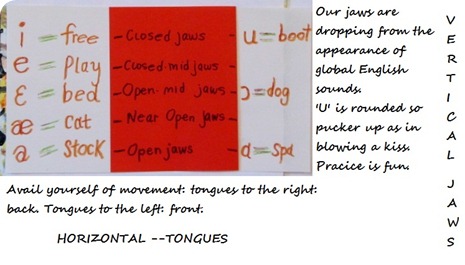 i = free
e = play
ɛ = bed
æ = cat
a = stock
- Closed jaws -
- Closed-mid jaws -
- Open-mid jaws -
- Near Open jaws -
- Open jaws -
u = boot
ɔ = dog
ɑ = spa
Our jaws are
dropping from the
appearance of
global English
sounds.
'U' is rounded so
pucker up as in
blowing a kiss.
Pracice is fun.
VERTICAL JAWS
Avail yourself of movement: tongues to the right:
back. Tongues to the left: front.
HORIZONTAL --TONGUES